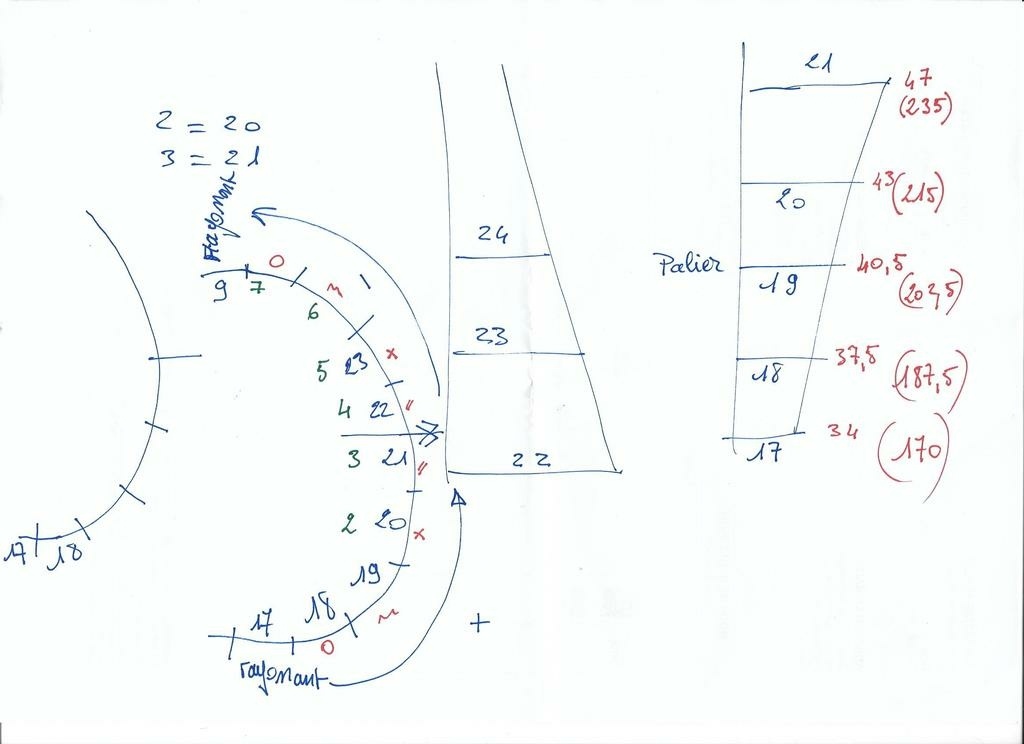 2 = 20
3 = 21
rayonnant
9 7 O
6 ~
5 23 x
4 22 "
3 21 "
2 20 x
19
17 18 ~
O
rayonant
+
17 18
24
23
22
21 47
(235)
20 43 (215)
Palier 19 40,5
(202,5)
18 37,5 (187,5)
17 34 (170)